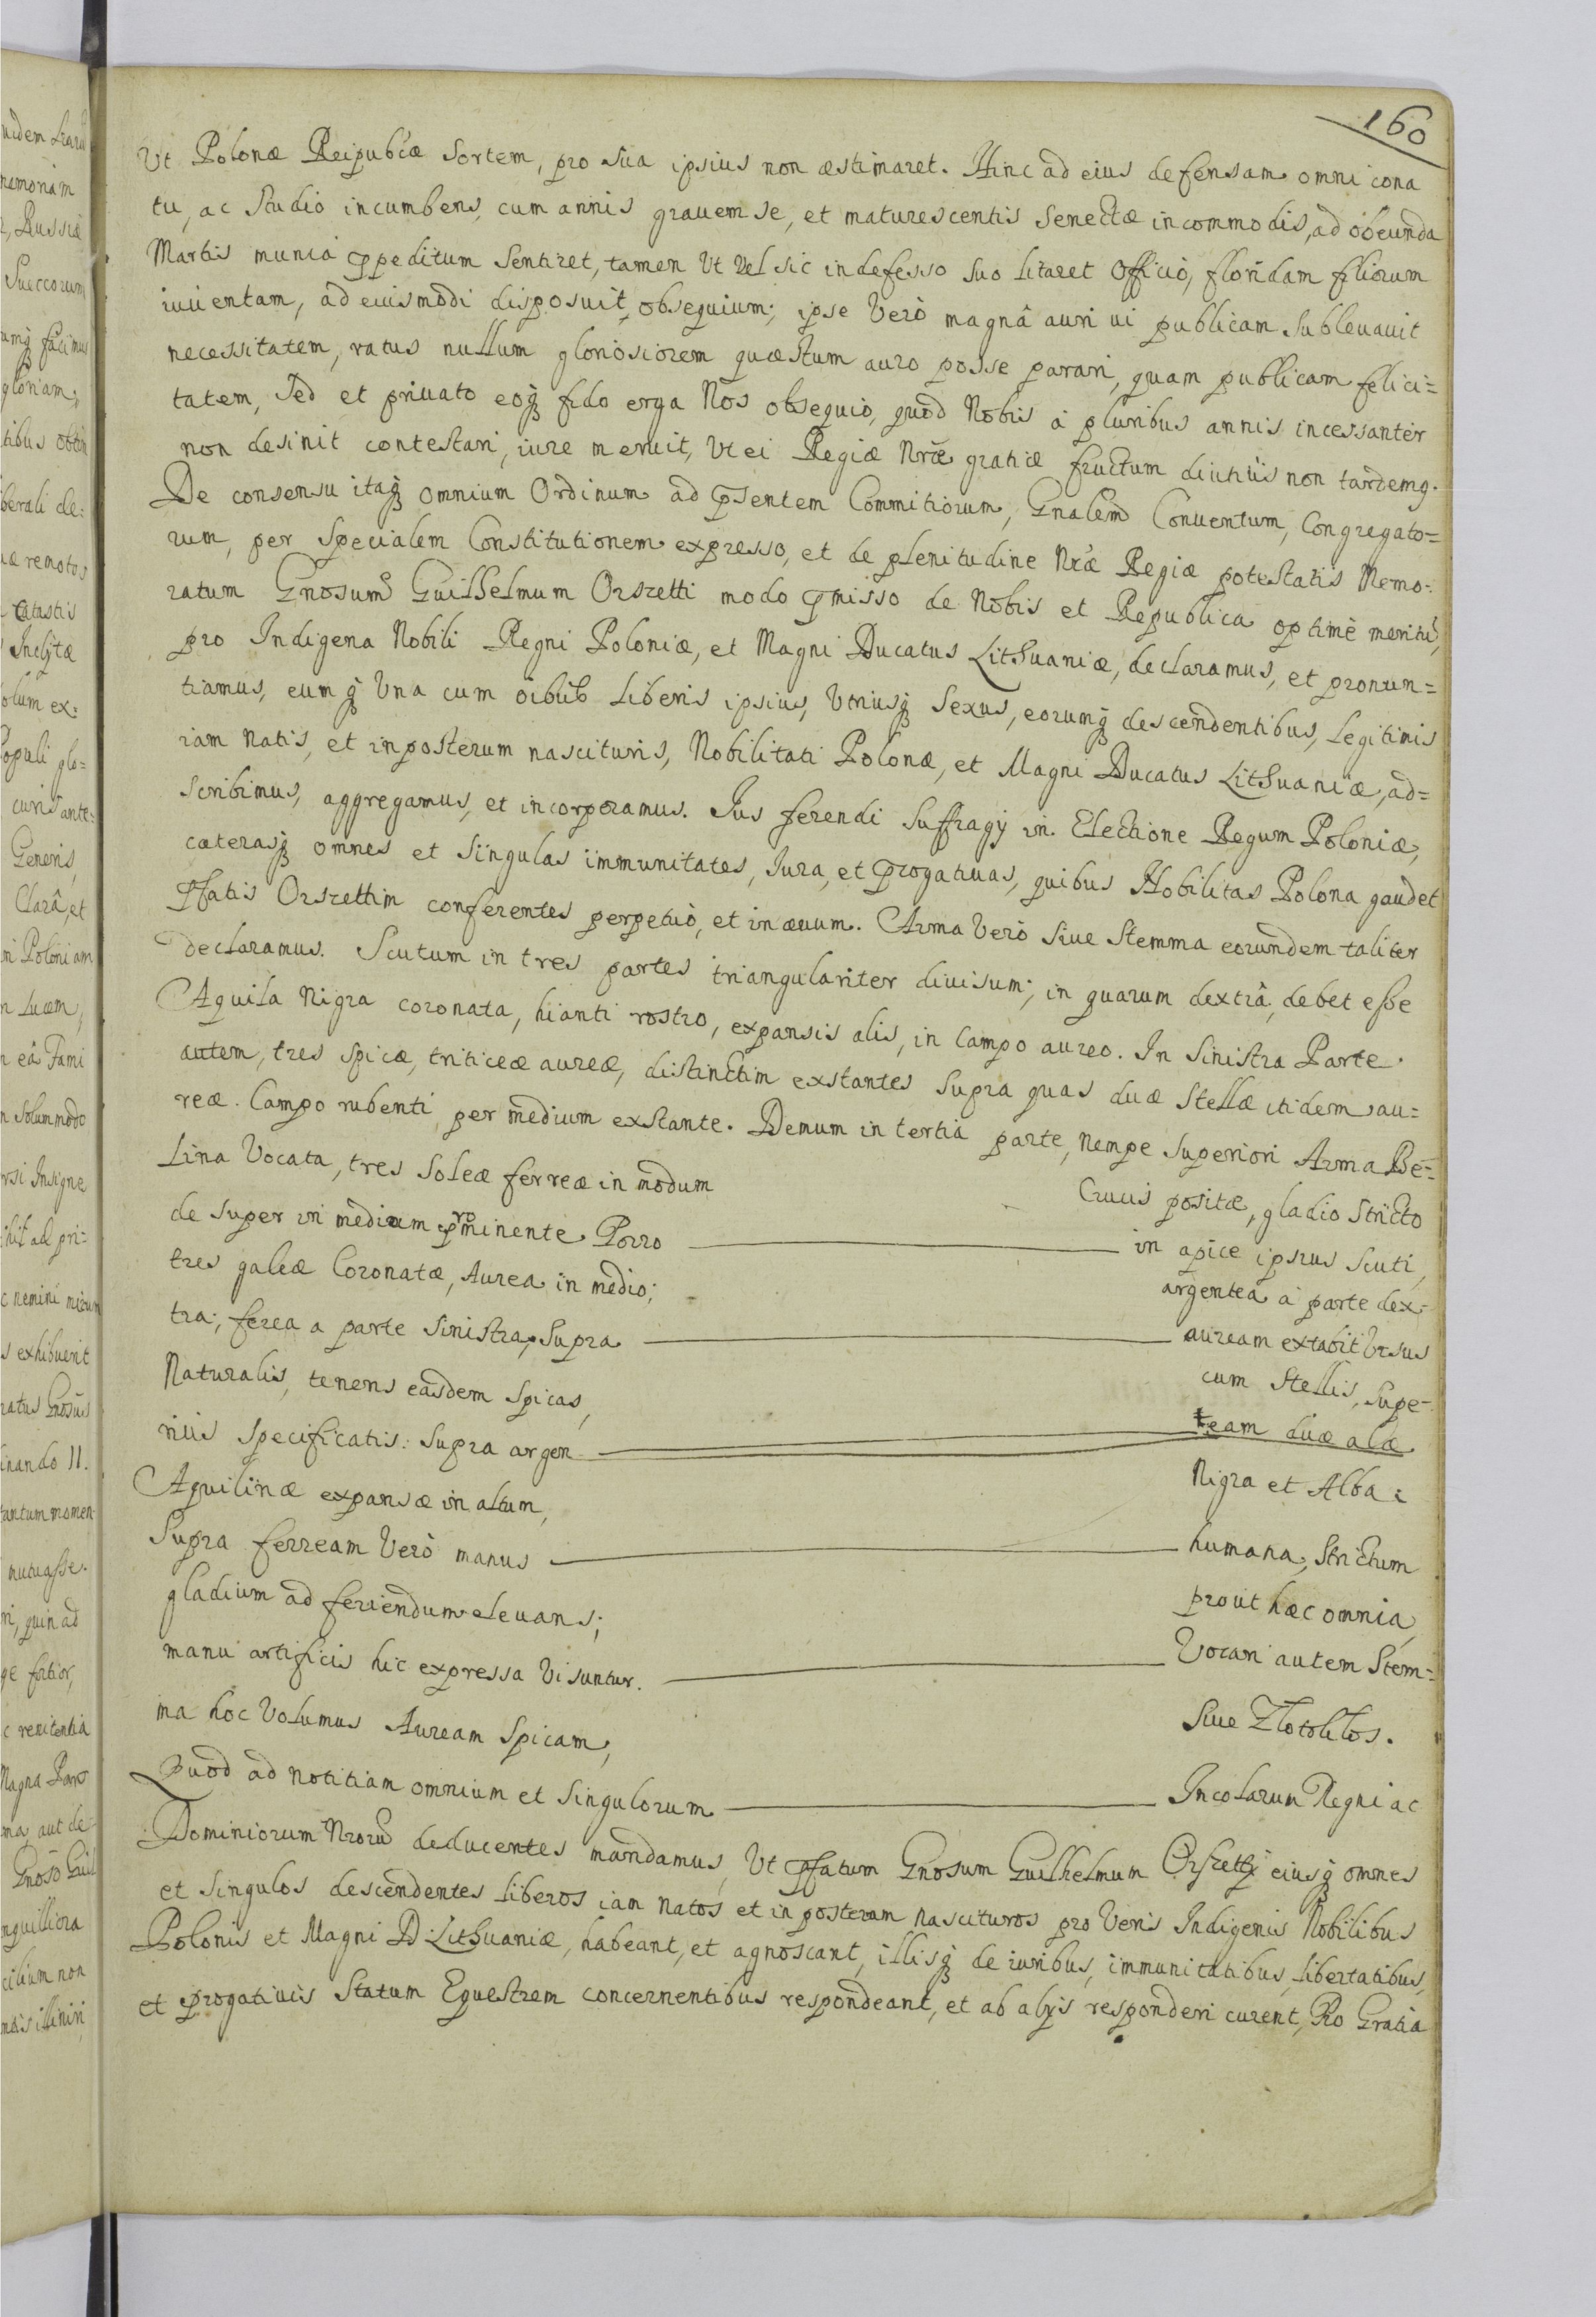 160
Ut Polonæ Reipub'cæ sortem, pro sua ipsius non æstimaret. Hinc ad eius defensam omni cona
tu, ac studio incumbens, cum annis grauem se, et maturescentis senectæ incommodis, ad obeunda
Martis munia ꝓpeditum sentiret, tamen Ut Vel sic indefesso suo litaret Officio, floridam filiorum
iuuentam, ad euismodi disposuit obsequium; ipse Verò magnâ auri ui publicam subleuauit
necessitatem, ratus nullum gloriosiorem quæstum auro posse parari, quam publicam felici=
tatem, sed et priuato eoq́ fido erga Nos obsequio, quod Nobis à pluribus annis incessanter
non desinit contestari, iure meruit, Ut ei Regiæ Nræ gratiæ fructum diutius non tardemq.
De consensu itaq́ omnium Ordinum ad p̄sentem Commitiorum, Gnalem Conuentum, Congregato=
rum, per Specialem Constitutionem expresso, et de plenitudine Nræ Regiæ potestatis Memo=
ratum Gnosum Guilhelmum Orszetti modo p̄misso de Nobis et Republica optimè meritū,
pro Indigena Nobili Regni Poloniæ, et Magni Ducatus Lithuaniæ, declaramus, et pronun=
tiamus, eum q́ Una cum oibus liberis ipsius, Utriusq́ Sexus, eorumq́ descendentibus, legitimis
iam natis, et inposterum nascituris, Nobilitati Polonæ, et Magni Ducatus Lithuaniæ, ad=
scribimus, aggregamus, et incorporamus. Jus ferendi suffragÿ in Electione Regum Poloniæ,
cæterasq́ omnes et singulas immunitates, Jura, et p̄rogatiuas, quibus Nobilitas Polona gaudet
p̄fatis Orszettim conferentes perpetuò, et in æuum. Arma Verò siue Stemma eorundem taliter
declaramus. Scutum in tres partes triangulariter diuisum; in quarum dextrâ, debet esse
Aquila Nigra coronata, hianti rostro, expansis alis, in Campo aureo. In Sinistra Parte
autem, tres spicæ, triticeæ aureæ, distinctim exstantes supra quas duæ Stellæ itidem au=
reæ. Campo rubenti per medium exstante. Demum in tertia parte, nempe superiori Arma Be=
lina Vocata, tres Soleæ ferreæ in modum Crucis positæ, gladio stricto
de super in medium prominente Porro in apice ipsius scuti,
tres galeæ Coronatæ, Aurea in medio; argentea à parte dex=
tra; ferea a parte Sinistra, Supra auream extabit Ursus
Naturalis, tenens easdem spicas, cum Stellis, Supe=
rius Specificatis: Supra argen team duæ alæ
Aquilinæ expansæ in altum, Nigra et Alba:
Supra ferream Verò manus humana, Strictum
gladium ad feriendum eleuans; prout hæc omnia,
manu artificis hic expressa Visuntur. Vocari autem Stem=
ma hoc Volumus Auream Spicam, Siue Zlotoklos.
Quod ad notitiam omnium et Singulorum Incolarum Regni ac
Dominiorum Nrorū deducentes mandamus, Ut p̄fatum Gnosum Guilhelmum Orszetti eiusq́ omnes
et singulos descendentes liberos iam natos et in posterum nascituros pro Veris Indigenis Nobilibus
Polonis et Magni D. Lithuaniæ, habeant, et agnoscant, illisq́ de iuribus, immunitatibus, libertatibus,
et p̄rogatiuis Statum Equestrem concernentibus respondeant, et ab alÿs responderi curent, Pro Gratia